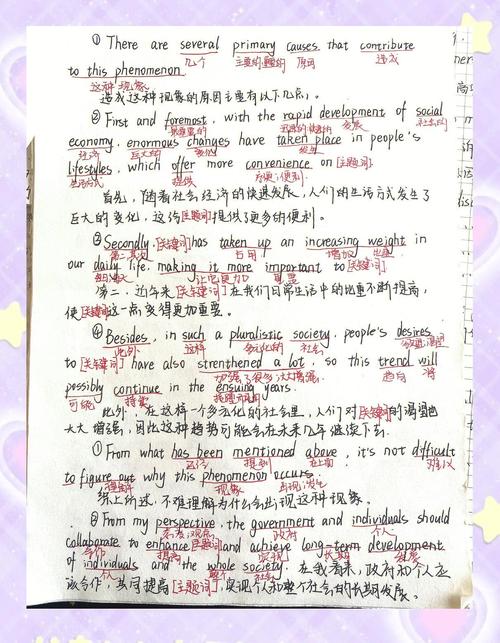 ① There are several primary causes that contribute
几个 主要的 原因 造成
to this phenomenon.
这种 现象
造成这种现象的原因主要有以下几点。
② First and foremost, with the rapid development of social
最重要的 发展 社会的
economy, enormous changes have taken place in people's
经济 巨大的 变化 发生
lifestyles, which offer more convenience on [主题词].
生活方式 提供 方便;便利
首先,随着社会经济的快速发展,人们的生活方式发生了
巨大的变化,这给[主题词]提供了更多的便利。
③ Secondly, [关键词] has taken up an increasing weight in
第二,其次 占用 增加
our daily life, making it more important to [关键词].
日常生活 让它更加 重要
第二,近年来[关键词]在我们日常生活中的比重不断提高,
使[关键词]这一点变得更加重要。
④ Besides, in such a pluralistic society, people's desires
此外 这样 多元化的 社会 渴望
to [关键词] have also strenthened a lot, so this trend will
加强了很多 趋势 将
possibly continue in the ensuing years.
可能 继续 接下来的
此外,在这样一个多元化的社会里,人们对[关键词]的渴望也
大大增强,因此这种趋势可能会在未来几年继续下去。
① From what has been mentioned above, it's not difficult
提到 在上面 难以
to figure out why this phenomenon occurs.
理解 现象 出现;发生
综上所述,不难理解为什么会出现这种现象。
② From my perspective, the government and individuals should
观点 政府 个人
collaborate to enhance [主题词] and achieve long-term development
合作 提高 实现 长期 发展
of individuals and the whole society. 在我看来,政府和个人应
个人 整个 社会
该合作,共同提高[主题词],实现个人和整个社会的长期发展。